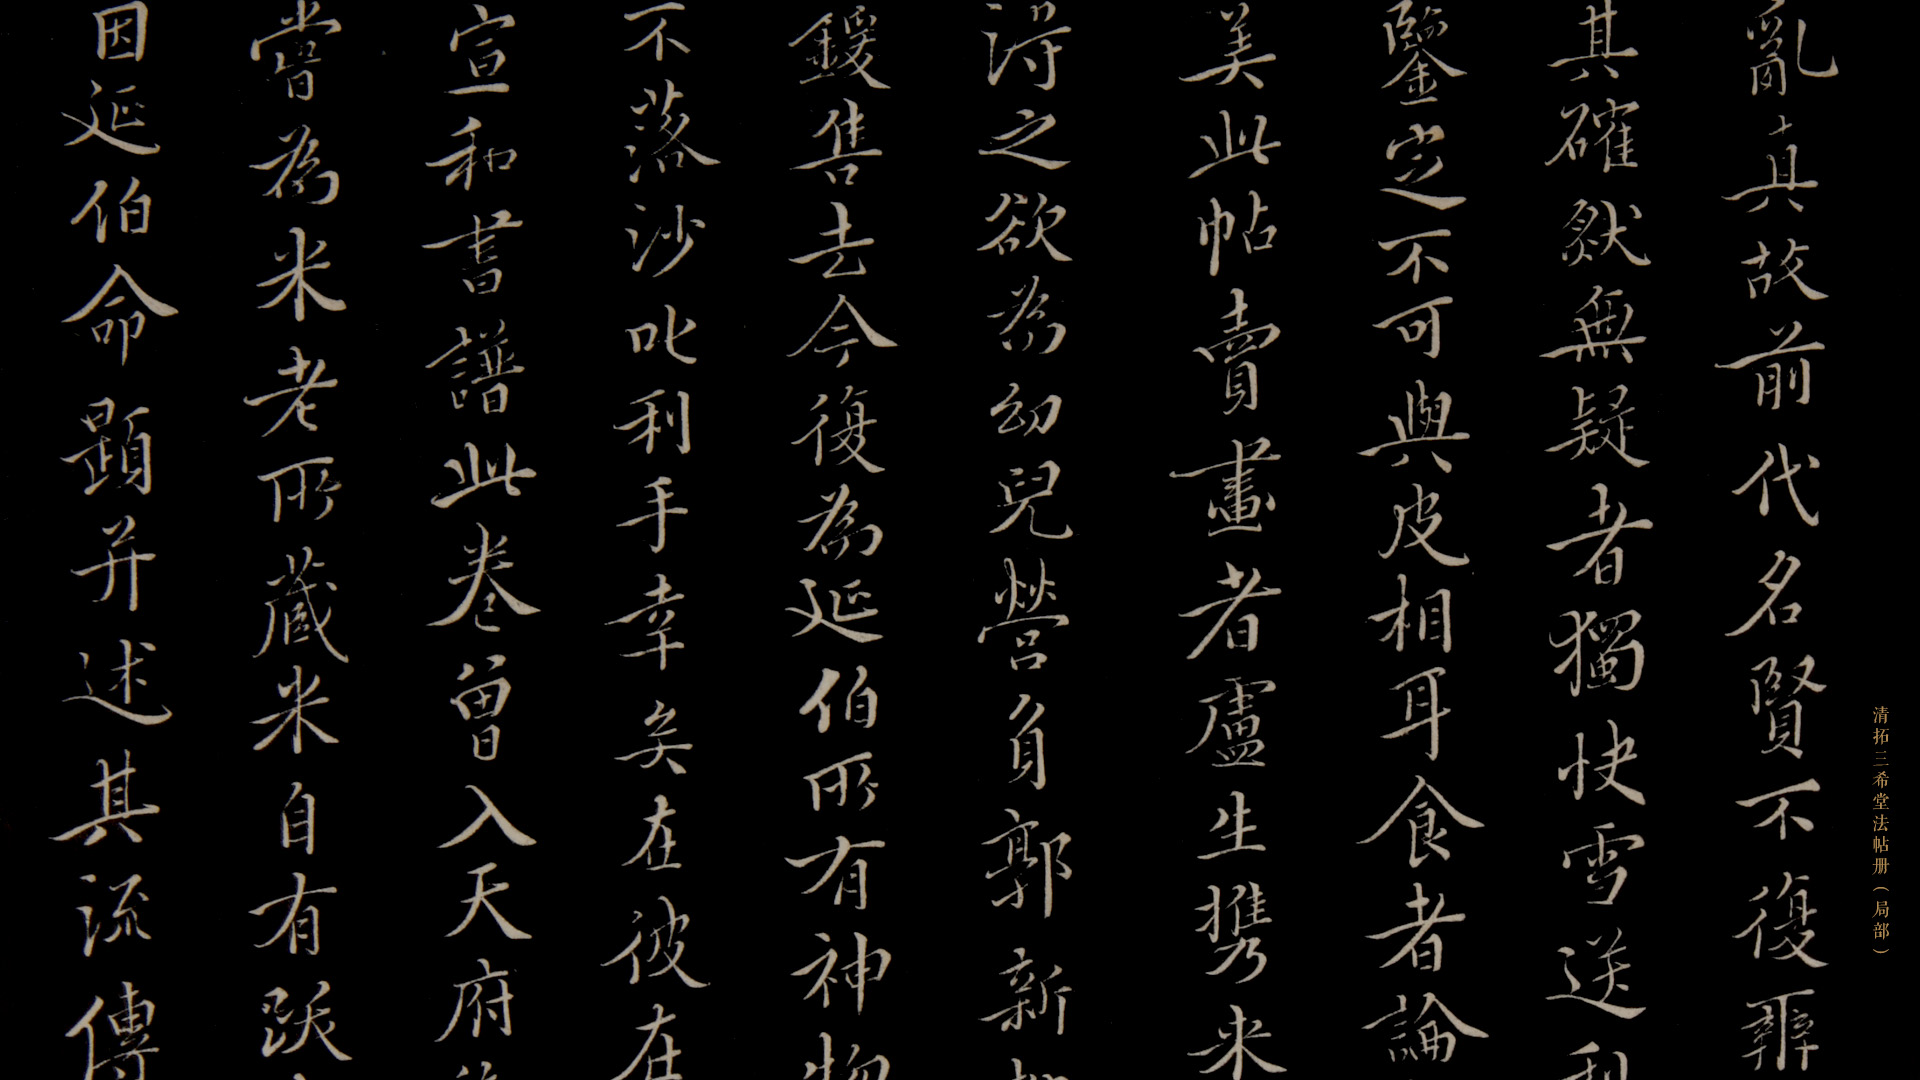 亂真故前代名賢不復辨
其確然無疑者獨快雪送
鑒定不可與皮相耳食者論
美此帖賣畫者盧生攜来
得之欲為幼兒營負郭新
鍰售去今復為延伯所有神物
不落沙吒利手幸矣在彼在
宣和書譜此卷曾入天府
嘗為米老所藏米自有跋
因延伯命題并述其流傳
清拓三希堂法帖册（局部）